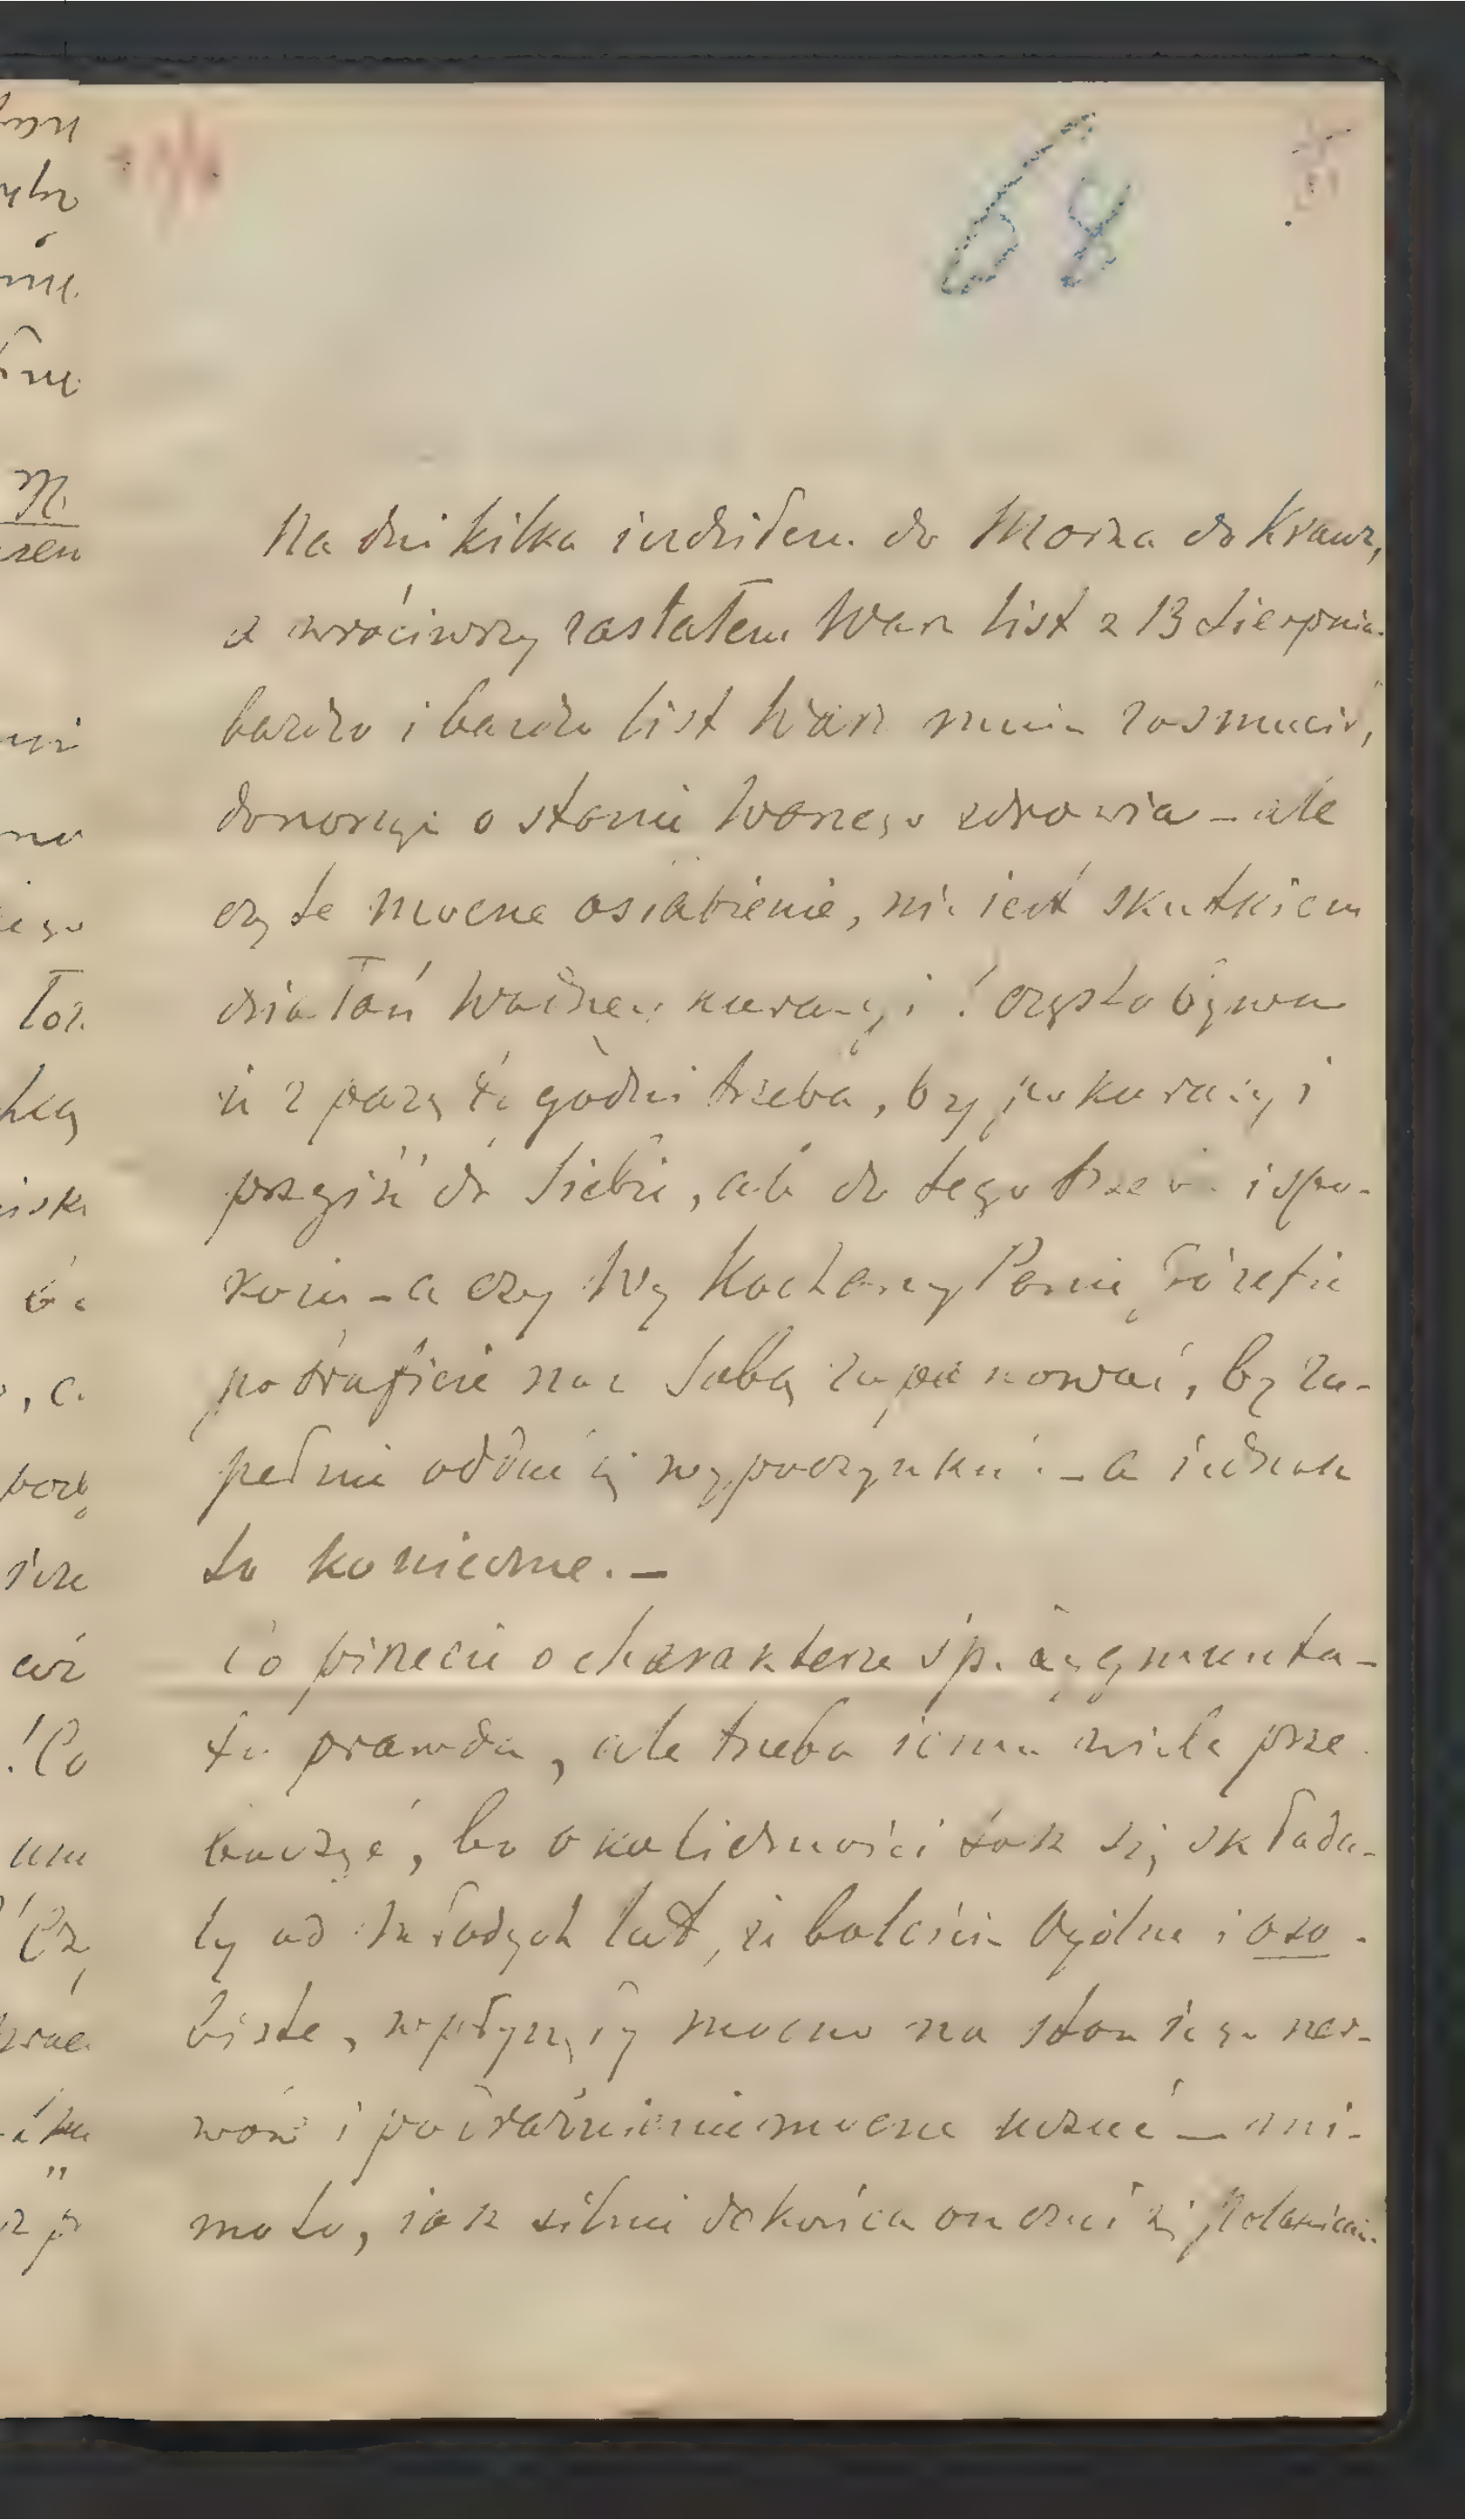 68
Na dni kilka iezdziłem do Morza do Kranz,
a wróciwszy zastałem Wasz list z 13 Sierpnia.
bardzo i bardzo list Wasz mnie zasmucił,
donosząc o stanie Waszego zdrowia – ale
czy te mocne osłabienie, nie jest skutkiem
działań Waszej kuracyi ! często bywa
iż z parę tygodni trzeba, by po kuracyi
przyjść do siebie, ale do tego trzeba i spo-
koju – a czy Wy Kochany Panie Józefie
potraficie nad Sobą zapanować, by zu-
pełnie oddać się wypoczynku – a jednak
to konieczne. –
Co piszecie o charakterze śp. Zygmunta –
to prawda, ale trzeba jemu wiele prze
baczyć, bo okoliczności tak się składa-
ły od młodych lat, że boleści ogólne i oso-
biste, wpłynęły mocno na stan jego ner-
wów i podrażnienie mocne uczuć – mi-
mo to, jak silnie do końca on czuł się